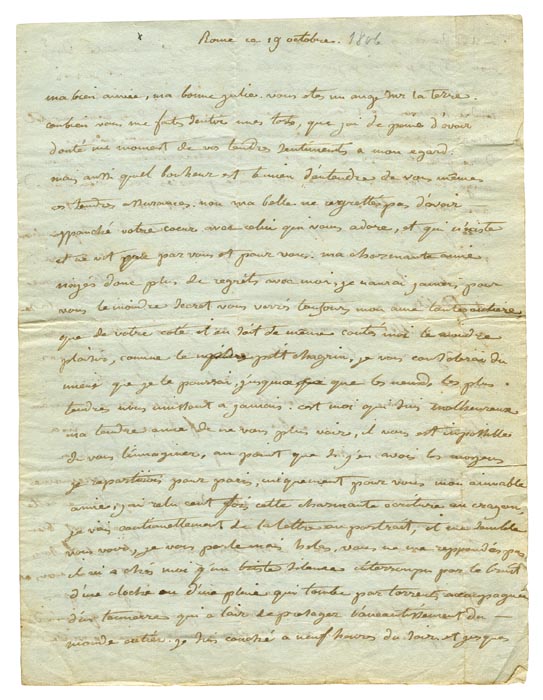 Rome ce 19 octobre. 1806
ma bien aimée, ma bonne julie. vous etes un ange sur la terre.
combien vous me faits sentire mes torts, que j'ai de peine d'avoir
douté un moment de vos tendres sentiments a mon egard
mais aussi quel bonheur est le mien d'entendre de vous mêmes
ces tendres assurances. non ma belle ne regrettés pas d'avoir
eppanché votre coeur avec celui qui vous adore, et qui n'existe
et ne vit que par vous et pour vous. ma charmante amie
n'ayés donc plus de regrets avec moi, je n'aurai jamais pour
vous le moindre secret vous verrés toujours mon ame toute entiere
que de votre coté il en soit de même contés moi le moindre
plaisir, comme le petit chagrin, je vous consolerai du
mieux que je le pourrai, jusqua que les neuds les plus
tendres nous unissent a jamais. c'est moi qui suis malheureux
ma tendre amie de ne vous plus voire, il vous est impossible
de vous l'imaginer, au point que si j'en avois les moyens
je repartirois pour paris, uniquement pour vous mon aimable
amie, j'ai relu cent fois cette charmante ecriture au crayon,
je vais continuellement de la lettre au portrait, et il me semble
vous voire, je vous parle mais helas, vous ne me reppondés pas
il n'i a chés moi qu'un triste silence interrompu par le bruit
d'une cloche ou d'une pluie qui tombe par torrents accompagnée
d'un tonnerre qui a l'air de presager l'aneantissement du
monde entier. je suis couché a neuf heures du soir et jusques